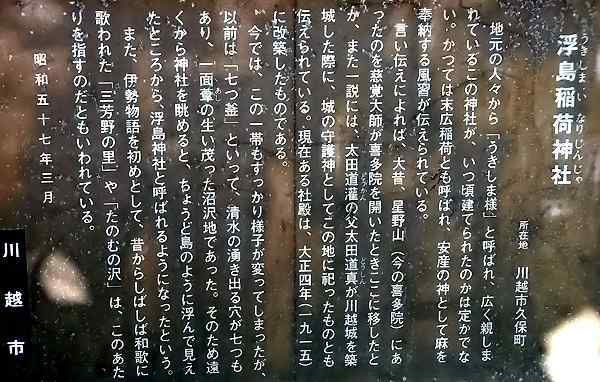 うきしまいなりじんじゃ
浮島稲荷神社
所在地 川越市久保町
地元の人々から「うきしま様」と呼ばれ、広く親しま
れているこの神社が、いつ頃建てられたのかは定かでな
い。かつては末広稲荷とも呼ばれ、安産の神として麻を
奉納する風習が伝えられている。
言い伝えによれば、大昔、星野山(今の喜多院)にあ
ったのを慈覚大師が喜多院を開いたときここに移したと
か、また一説には、太田道灌の父太田道真が川越城を築
どうかん
どうしん
城した際に、城の守護神としてこの地に祀ったものとも
伝えられている。現在ある社殿は、大正四年(一九一五)
に改築したものである。
今では、この一帯もすっかり様子が変ってしまったが、
以前は「七つ釜」といって、清水の湧き出る穴が七つも
あり、一面葦の生い茂った沼沢地であった。そのため遠
あし
くから神社を眺めると、ちょうど島のように浮んで見え
たところから、浮島神社と呼ばれるようになったという。
また、伊勢物語を初めとして、昔からしばしば和歌に
歌われた「三芳野の里」や「たのむの沢」は、このあた
りを指すのだともいわれている。
昭和五十七年三月
川越市